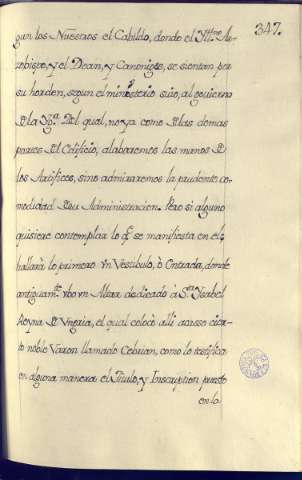 347.
gun los Nuestros el Cabildo, donde el Yltmo. Ar-
zobispo, y el Dean, y Canonigos, se sientan por
su horden, segun el ministerio suio, al govierno
de la Yga. Del qual, no ya como de las demas
partes del Edificio, alabaremos las manos de
los Artifices, sino admiraremos la prudente co-
modidad de su Administracion. Pero si alguno
quisiere contemplar lo q̃ se manifiesta en el,
hallarà lo primero vn Vestibulo, ò Entrada, donde
antiguamte. vbo vn Altar dedicado à Sta. Ysabel
Reyna de Vngria, el qual colocó alli acasso cier-
to noble Varon llamado Cebrian, como lo testifica
en alguna manera el Titulo, y Inscription puesto
en lo